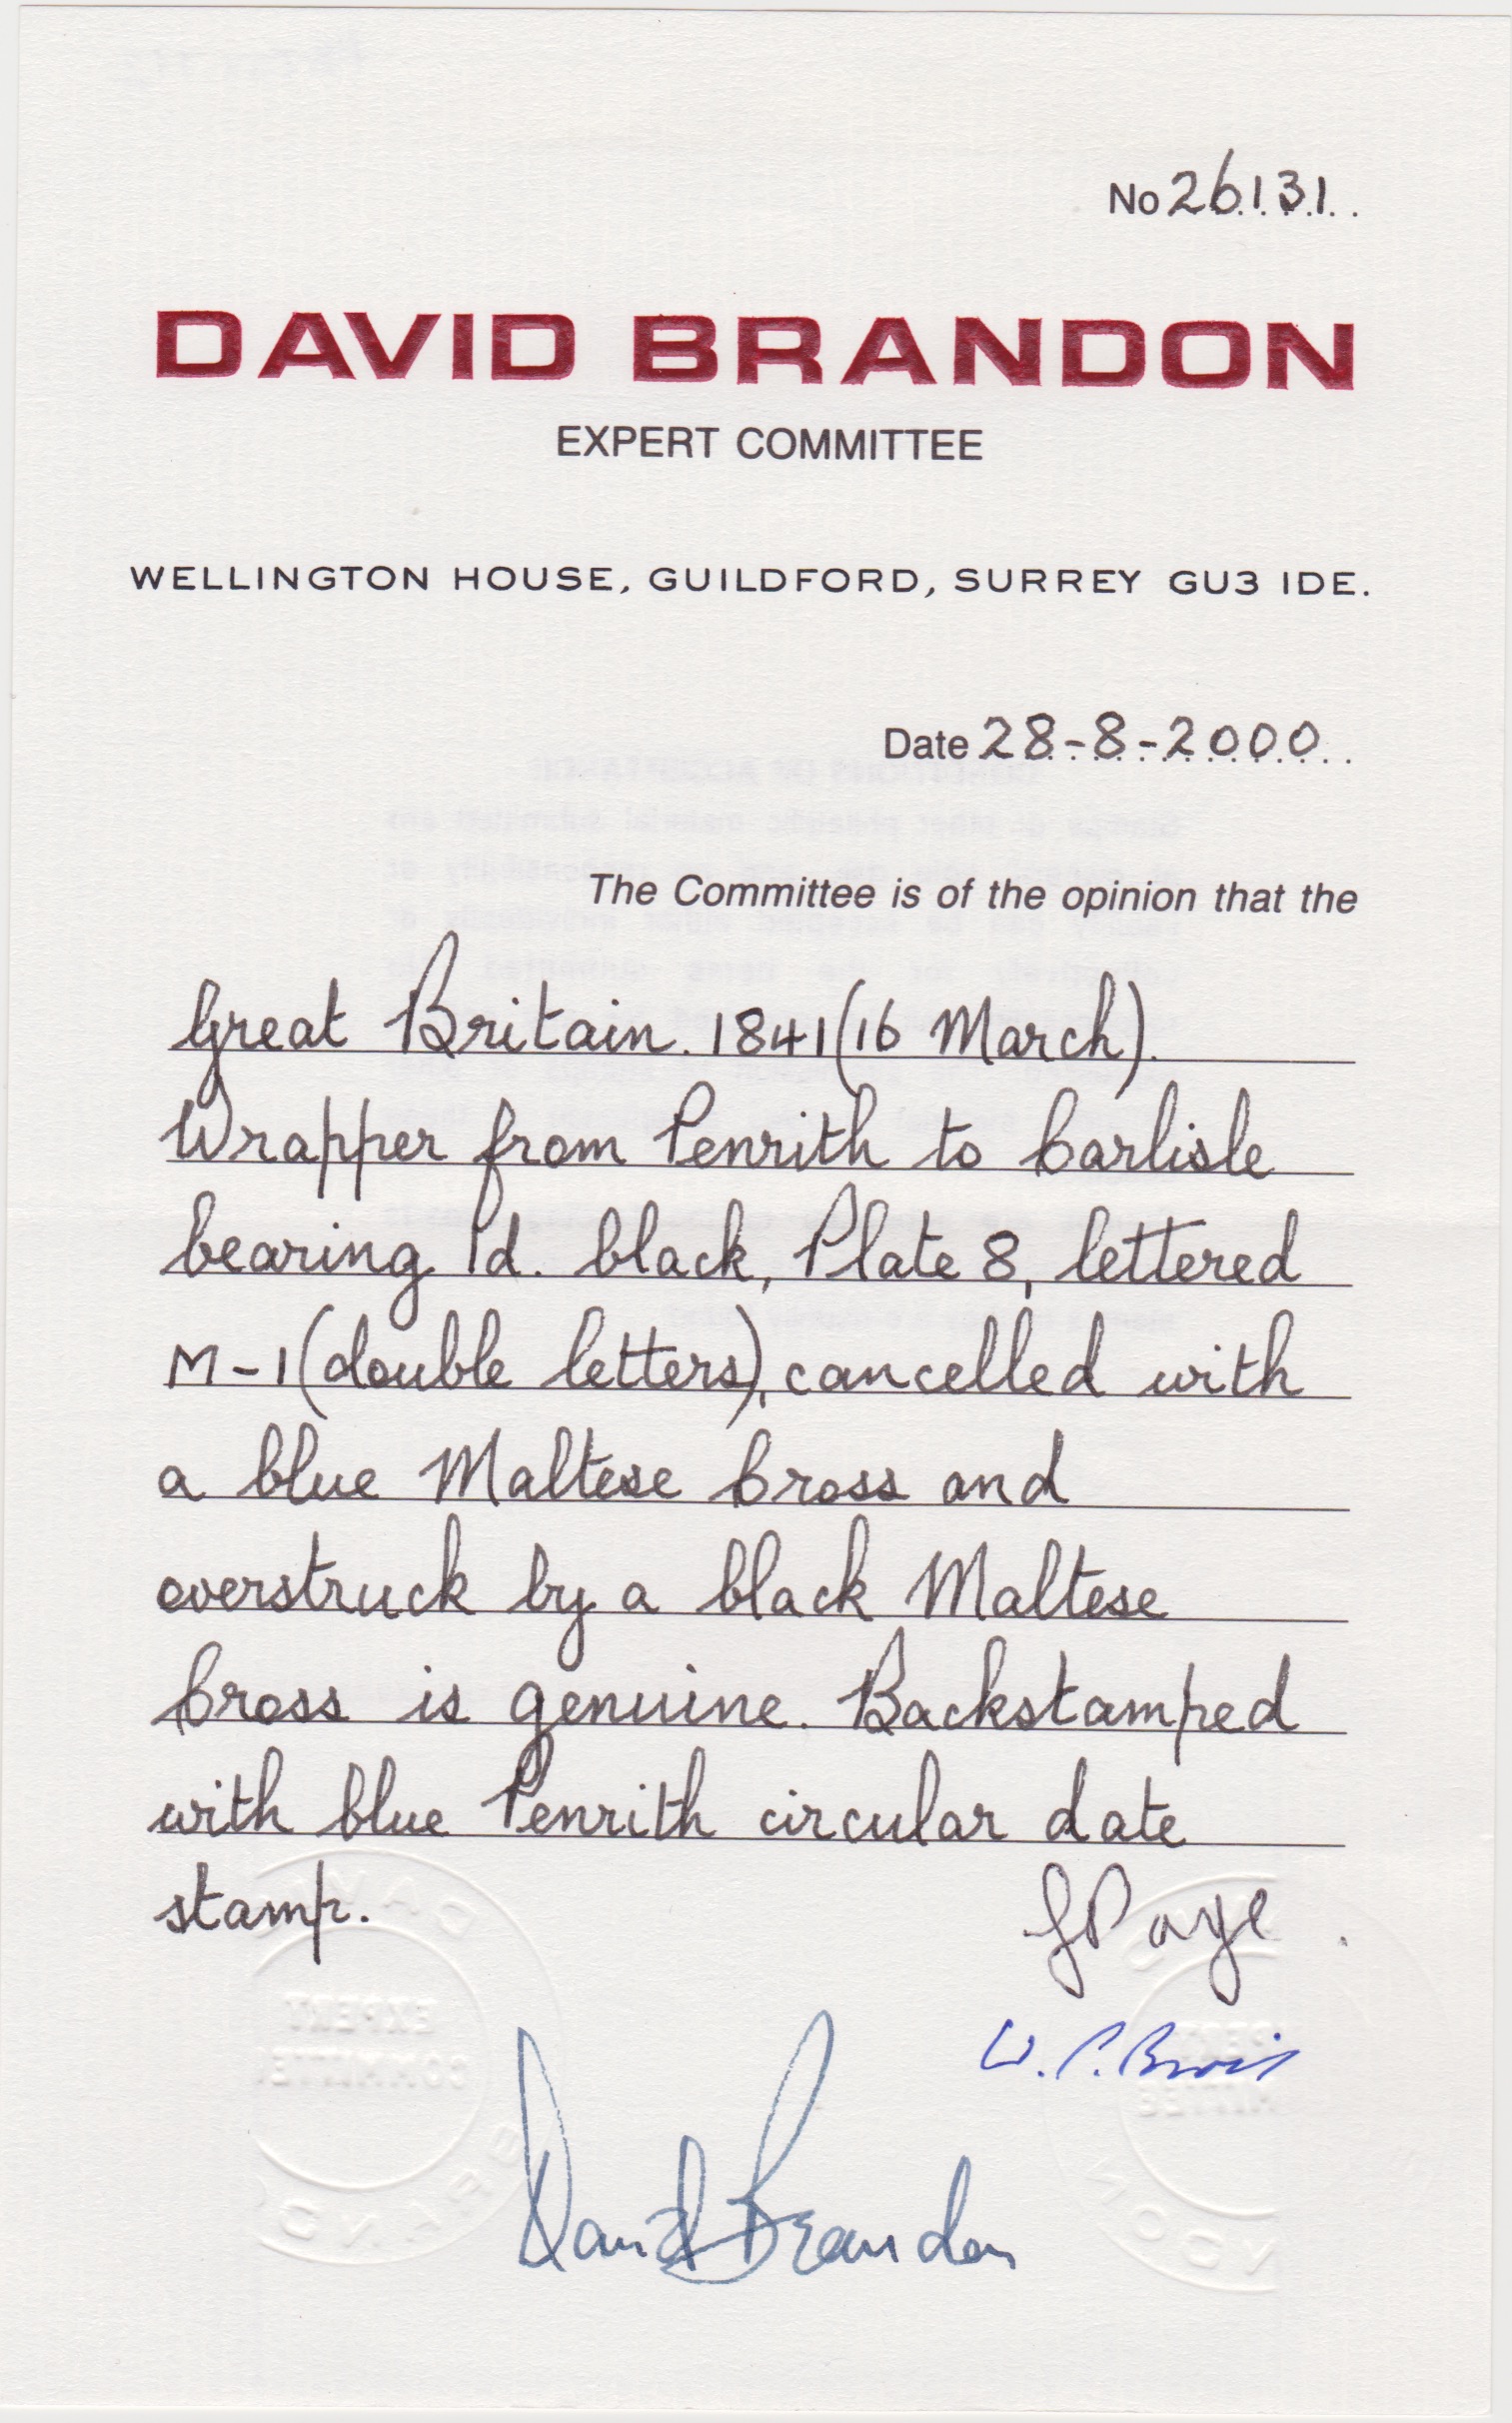 No 26131
DAVID BRANDON
EXPERT COMMITTEE
WELLINGTON HOUSE, GUILDFORD, SURREY GU3 1DE.
Date 28-8-2000
The Committee is of the opinion that the
Great Britain. 1841 (16 March).
Wrapper from Penrith to Carlisle
bearing 1d. black, Plate 8, lettered
M-I (double letters), cancelled with
a blue Maltese Cross and
overstruck by a black Maltese
Cross is genuine. Backstamped
with blue Penrith circular date
stamp.
David Brandon
EXPERT
COMMITTEE